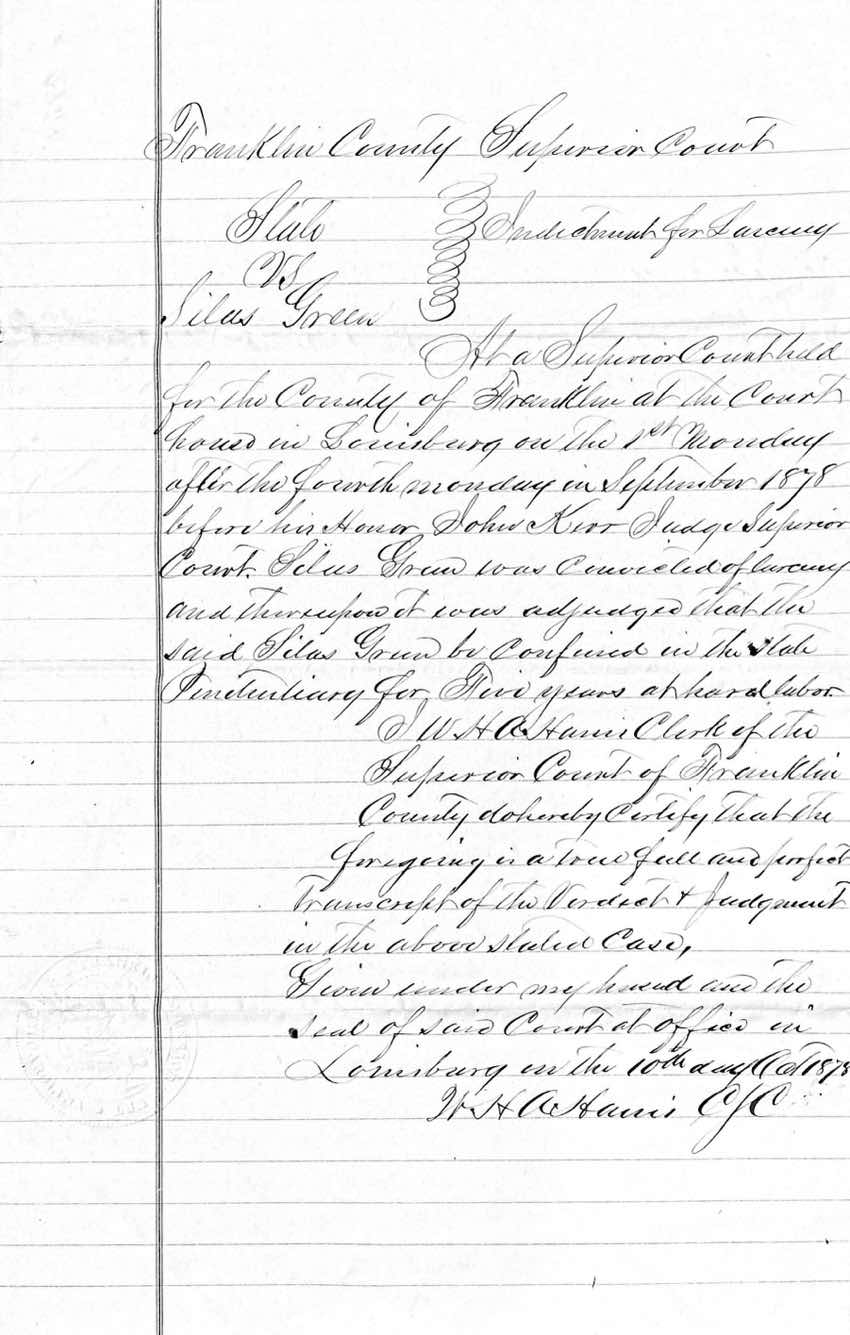 Franklin County Superior Court
State Indictment for Larceny
VS
Silas Green
At a Superior Court held
for the County of Franklin at the Court
house in Louisburg on the 1st Monday
after the fourth monday in September 1878
before his Honor John Kerr Judge Superior
Court. Silas Green was convicted of larceny
and thereupon it was adjudged that the
said Silas Green be confined in the state
Penitentiary for Five years at hard labor.
I W. H A Harris Clerk of the
Superior Court of Franklin
County do hereby Certify that the
foregoing is a true full and perfect
Transcript of the Verdict & Judgment
in the above stated Case,
Given under my hand and the
seal of said Court at office in
Louisburg on the 10th day Oct 1878
W H A Harris CSC